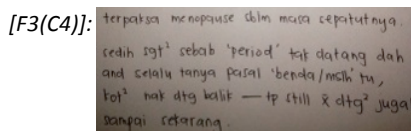 [F3(C4)]:
terpaksa menopause sblm masa sepatutnya.
sedih sgt² sebab 'period' tak datang dah
and selalu tanya pasal 'benda/mslh' tu,
kot² nak dtg balik — tp still x̄ dtg² juga
sampai sekarang.